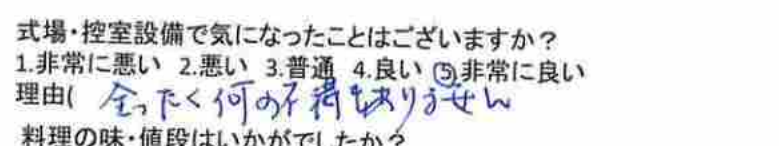 式場・控室設備で気になったことはございますか？
1.非常に悪い 2.悪い 3.普通 4.良い ⑤非常に良い
理由( 全ったく何の不満もありません
料理の味・値段はいかがでしたか？